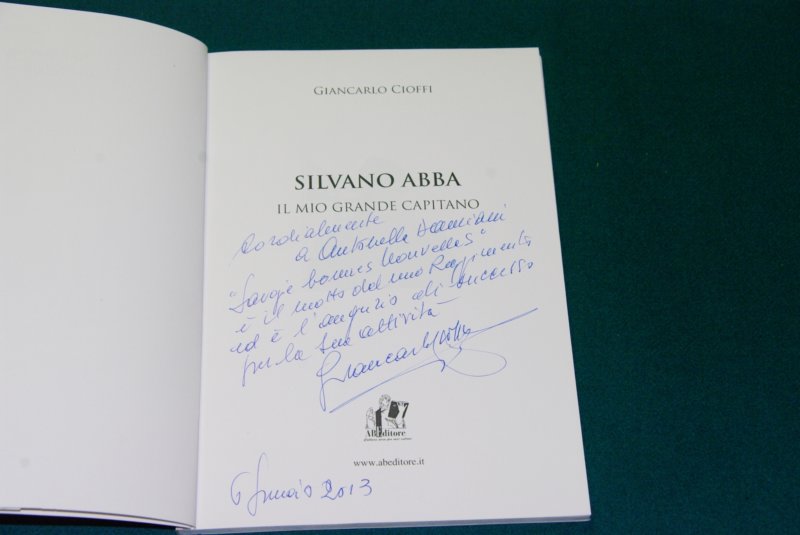 GIANCARLO CIOFFI
SILVANO ABBA
IL MIO GRANDE CAPITANO
Cordialmente
a Antonella Damiani
"Savoje bonnes Nouvelles"
è il motto del mio Reggimento
ed è l'augurio di successo
per la sua attività
Giancarlo Cioffi
ABEditore
www.abeditore.it
6 Gennaio 2013